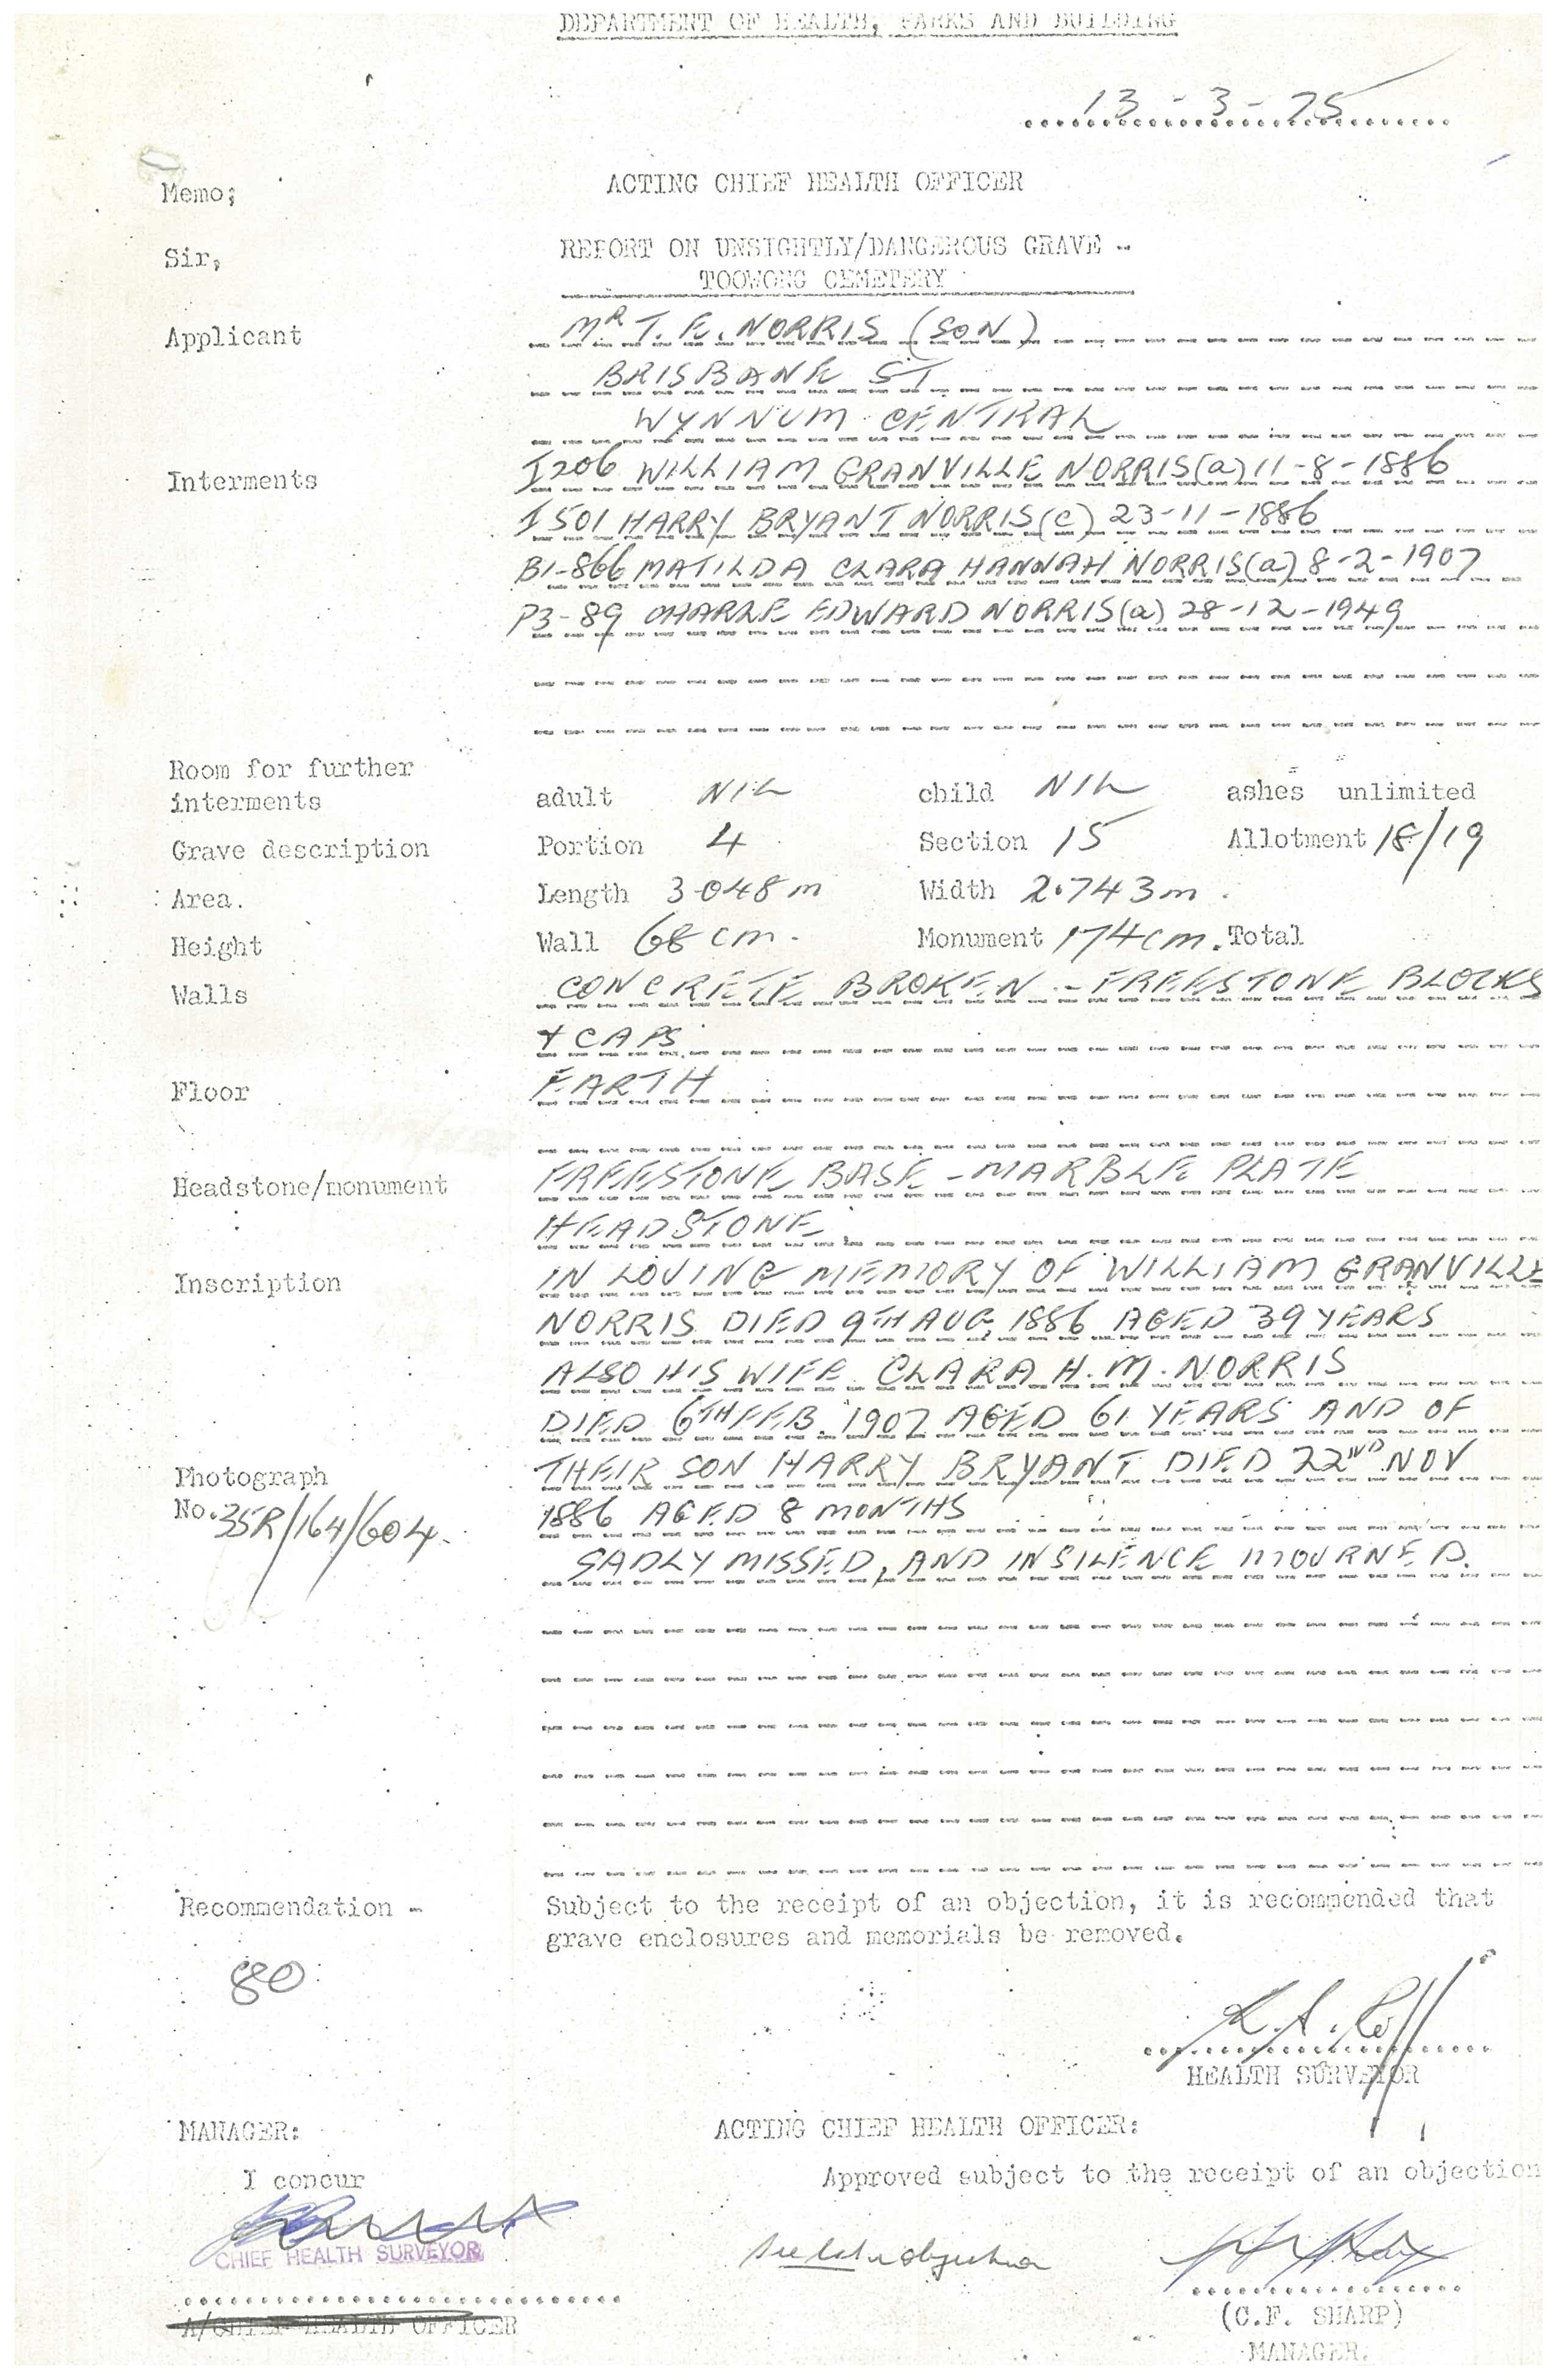 DEPARTMENT OF HEALTH, PARKS AND BUILDING
13-3-75
Memo; ACTING CHIEF HEALTH OFFICER
Sir, REPORT ON UNSIGHTLY/DANGEROUS GRAVE -
TOOWONG CEMETERY
Applicant MR T. E. NORRIS (SON)
BRISBANE ST
WYNNUM CENTRAL
Interments I206 WILLIAM GRANVILLE NORRIS (a) 11-8-1886
I501 HARRY BRYANT NORRIS (c) 23-11-1886
B1-866 MATILDA CLARA HANNAH NORRIS (a) 8-2-1907
P3-89 CHARLE EDWARD NORRIS (a) 28-12-1949
Room for further
interments adult NIL child NIL ashes unlimited
Grave description Portion 4 Section 15 Allotment 18/19
Area. Length 3.048m Width 2.743m.
Height Wall 68 cm. Monument 174cm. Total
Walls CONCRETE BROKEN - FREESTONE BLOCKS
+ CAPS
Floor EARTH
Headstone/monument FREESTONE BASE - MARBLE PLATE
HEADSTONE.
Inscription IN LOVING MEMORY OF WILLIAM GRANVILLE
NORRIS DIED 9TH AUG, 1886 AGED 39 YEARS
ALSO HIS WIFE CLARA H. M. NORRIS
DIED 6TH FEB. 1907 AGED 61 YEARS AND OF
Photograph THEIR SON HARRY BRYANT DIED 22ND NOV
No. 35R/164/604. 1886 AGED 8 MONTHS
SADLY MISSED, AND IN SILENCE MOURNED.
Recommendation - Subject to the receipt of an objection, it is recommended that
grave enclosures and memorials be removed.
80
HEALTH SURVEYOR
MANAGER: ACTING CHIEF HEALTH OFFICER:
I concur Approved subject to the receipt of an objection
CHIEF HEALTH SURVEYOR
see letter objection
A/CHIEF HEALTH OFFICER (C.F. SHARP)
MANAGER.